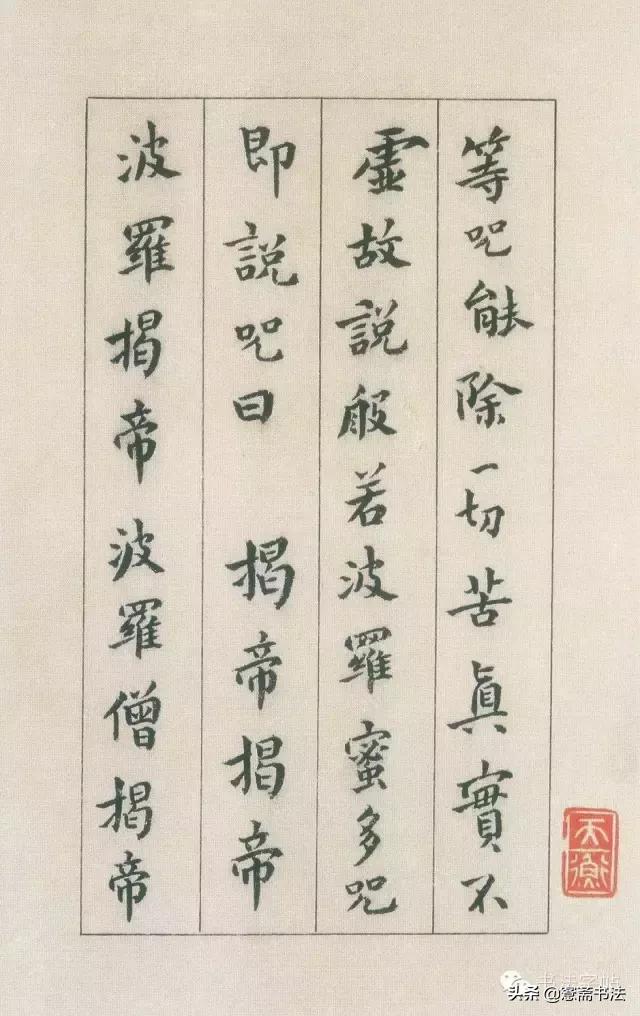 等咒能除一切苦真實不
虛故說般若波羅蜜多咒
即說咒曰　揭帝揭帝
波羅揭帝波羅僧揭帝
天衡
书法字帖
头条 @蹇斋书法